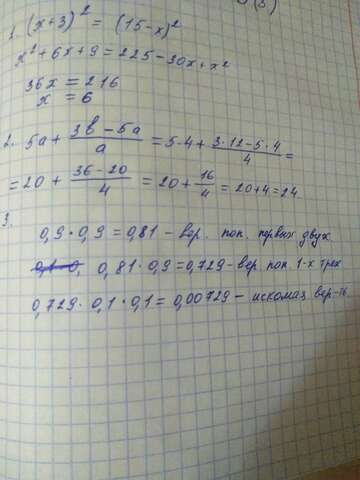 (5)
1. (x+3)² = (15-x)²
x²+6x+9=225-30x+x²
36x=216
x=6
2. 5a+\frac{3b-5a}{a}=5·4+\frac{3·12-5·4}{4}=
=20+\frac{36-20}{4}=20+\frac{16}{4}=20+4=24.
3.
0,9·0,9=0,81-вер. поп. первых двух
0,81·0,9=0,729-вер. поп. 1-х трех
0,729·0,1·0,1=0,00729-искомая вер-ть.